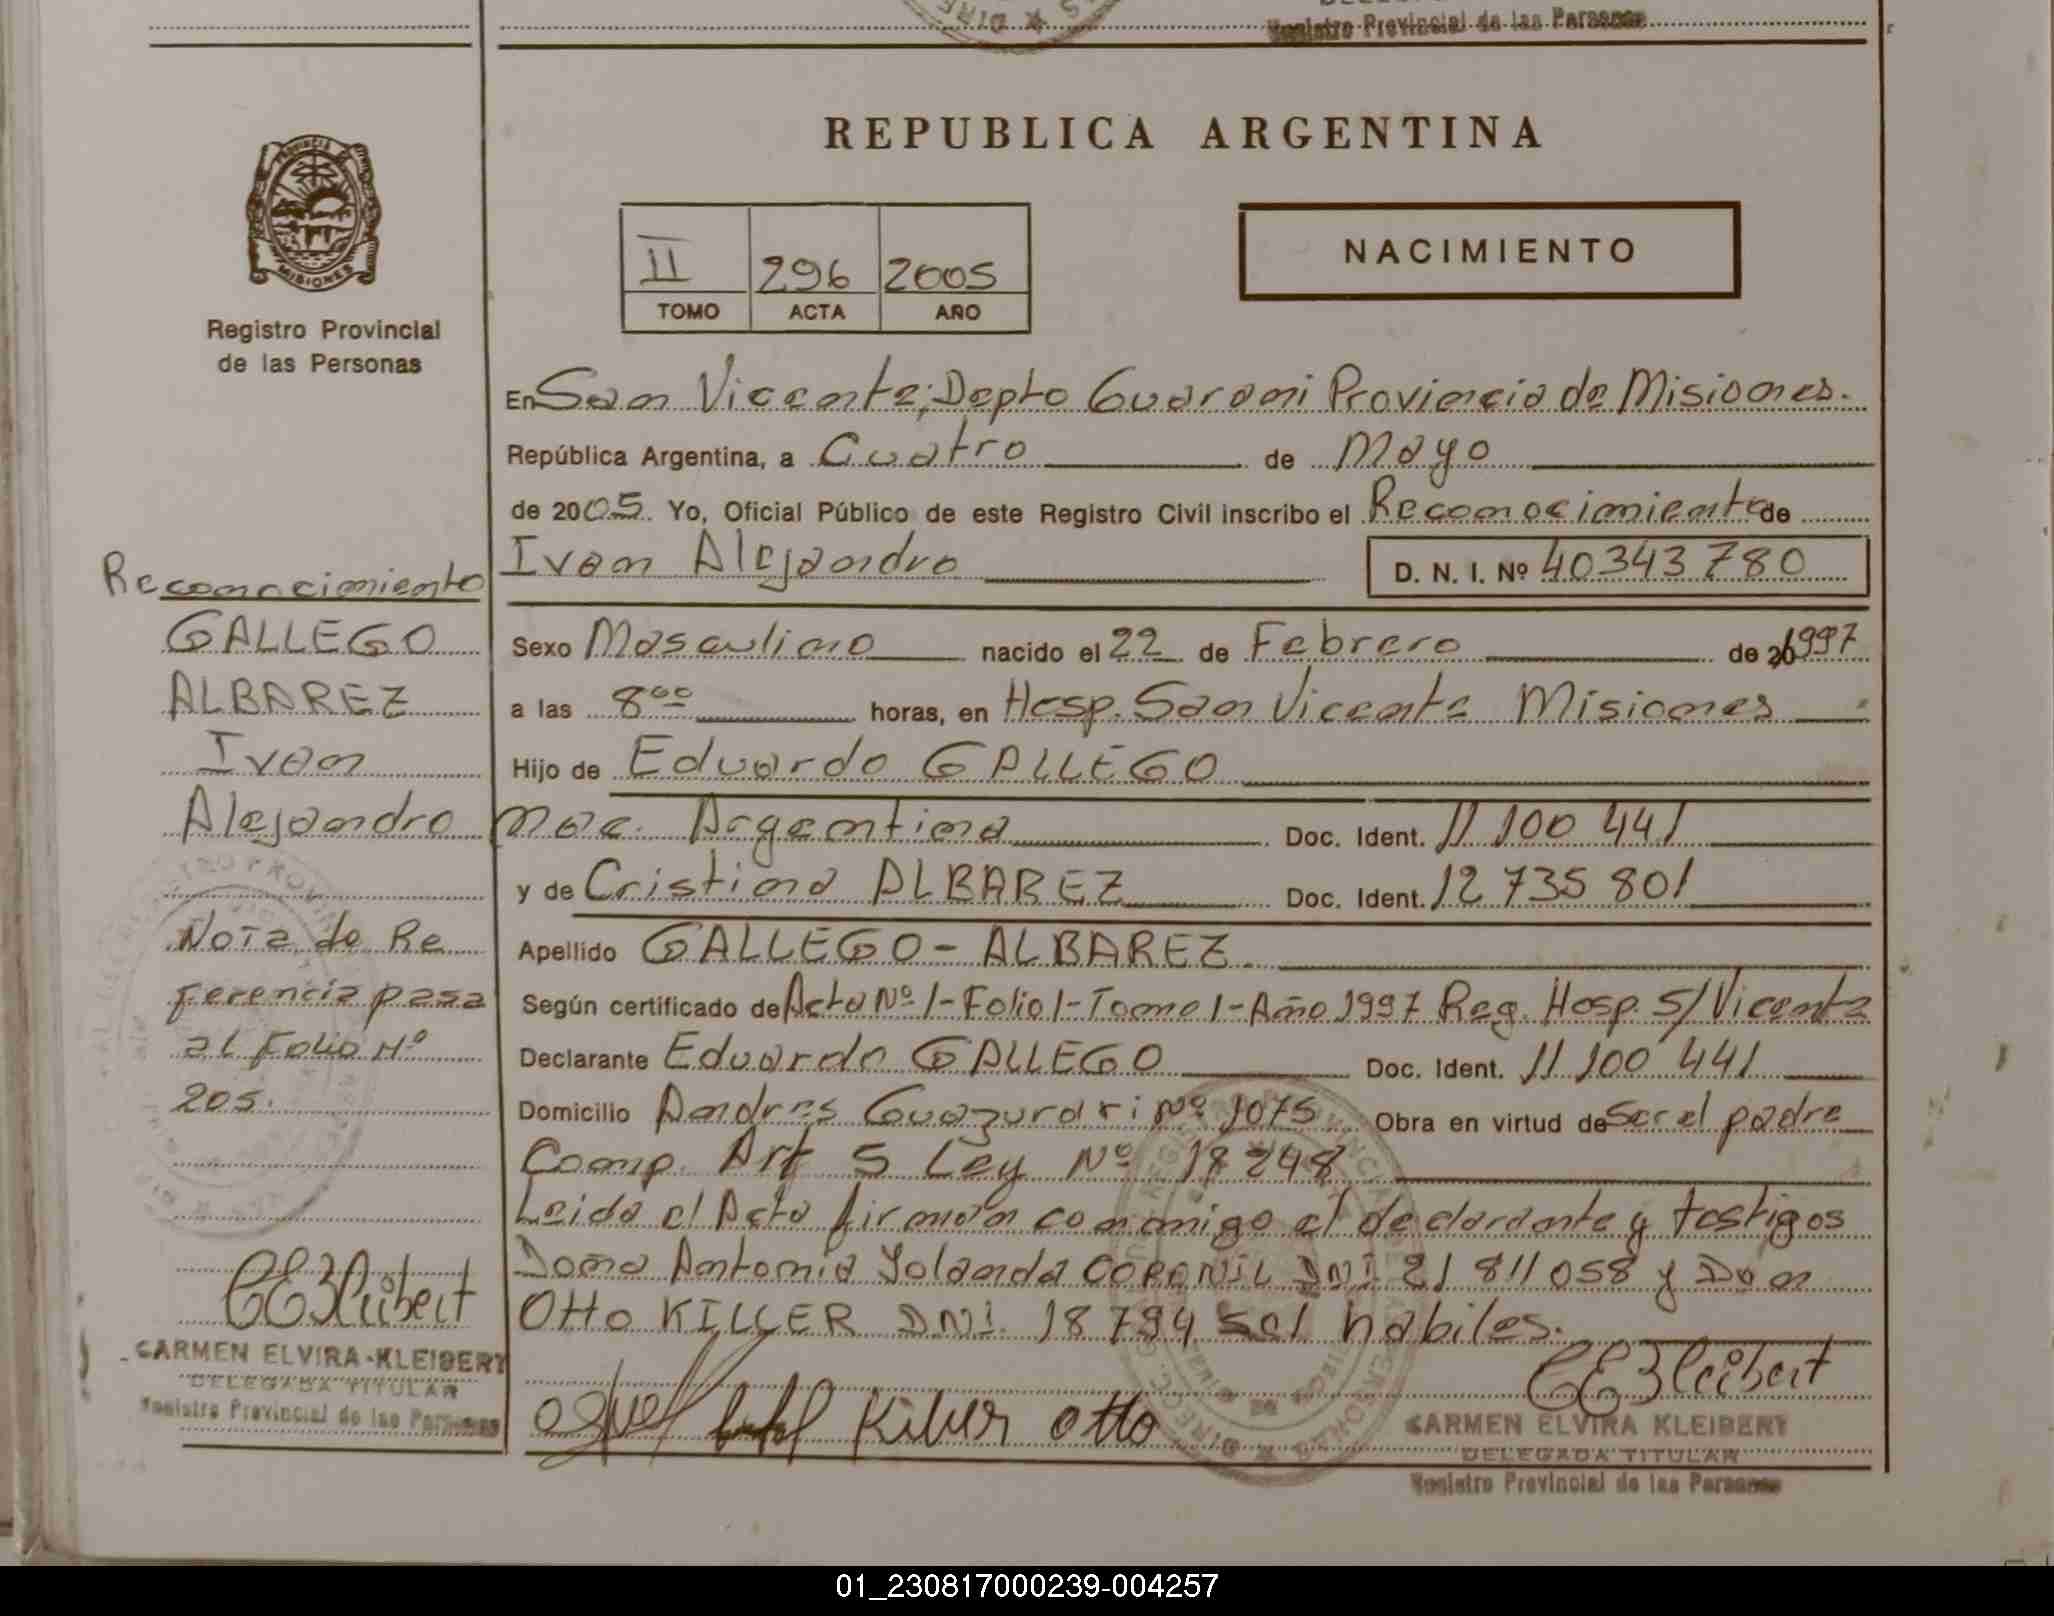 Registro Provincial de las Personas
REPUBLICA ARGENTINA
PROVINCIA DE
MISIONES
Registro Provincial
de las Personas
II 296 2005
TOMO ACTA AÑO
NACIMIENTO
En San Vicente; Depto Guarani Provincia de Misiones.
República Argentina, a Cuatro de Mayo
de 2005. Yo, Oficial Público de este Registro Civil inscribo el Reconocimiento de
Ivan Alejandro D. N. I. Nº 40343780
Sexo Masculino nacido el 22 de Febrero de 1997
a las 8⁰⁰ horas, en Hosp. San Vicente Misiones
Hijo de Eduardo GALLEGO
Nac. Argentina Doc. Ident. 11 100 441
y de Cristina ALBAREZ Doc. Ident. 12 735 801
Apellido GALLEGO - ALBAREZ.
Según certificado de Acta Nº 1 - Folio 1 - Tomo 1 - Año 1997 Reg. Hosp. S/Vicente
Declarante Eduardo GALLEGO Doc. Ident. 11 100 441
Domicilio Andres Guazurari Nº 1075 Obra en virtud de Ser el padre
Comp. Art 5 Ley Nº 18248
Leida el Acta firman conmigo el declarante y testigos
Doña Antonia Yolanda CORONIL DNI 21 811 058 y Don
Otto KILLER DNI. 18 794 habiles.
Killer Otto
CARMEN ELVIRA KLEIBERT
DELEGADA TITULAR
Registro Provincial de las Personas
Reconocimiento
GALLEGO
ALBAREZ
Ivan
Alejandro
Nota de Re
ferencia pasa
al Folio Nº
205.
CARMEN ELVIRA KLEIBERT
DELEGADA TITULAR
Registro Provincial de las Personas
01_230817000239-004257